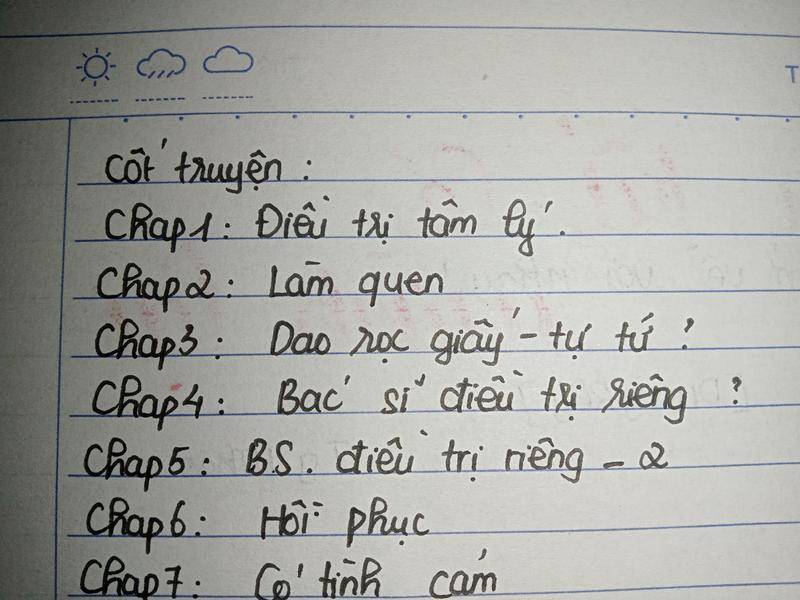 Cốt truyện :
Chap 1 : Điều trị tâm lý.
Chap 2 : Làm quen
Chap 3 : Dao rọc giấy - tự tứ ?
Chap 4 : Bác sĩ điều trị riêng ?
Chap 5 : BS. điều trị riêng - 2
Chap 6 : Hồi phục
Chap 7 : Có tình cảm